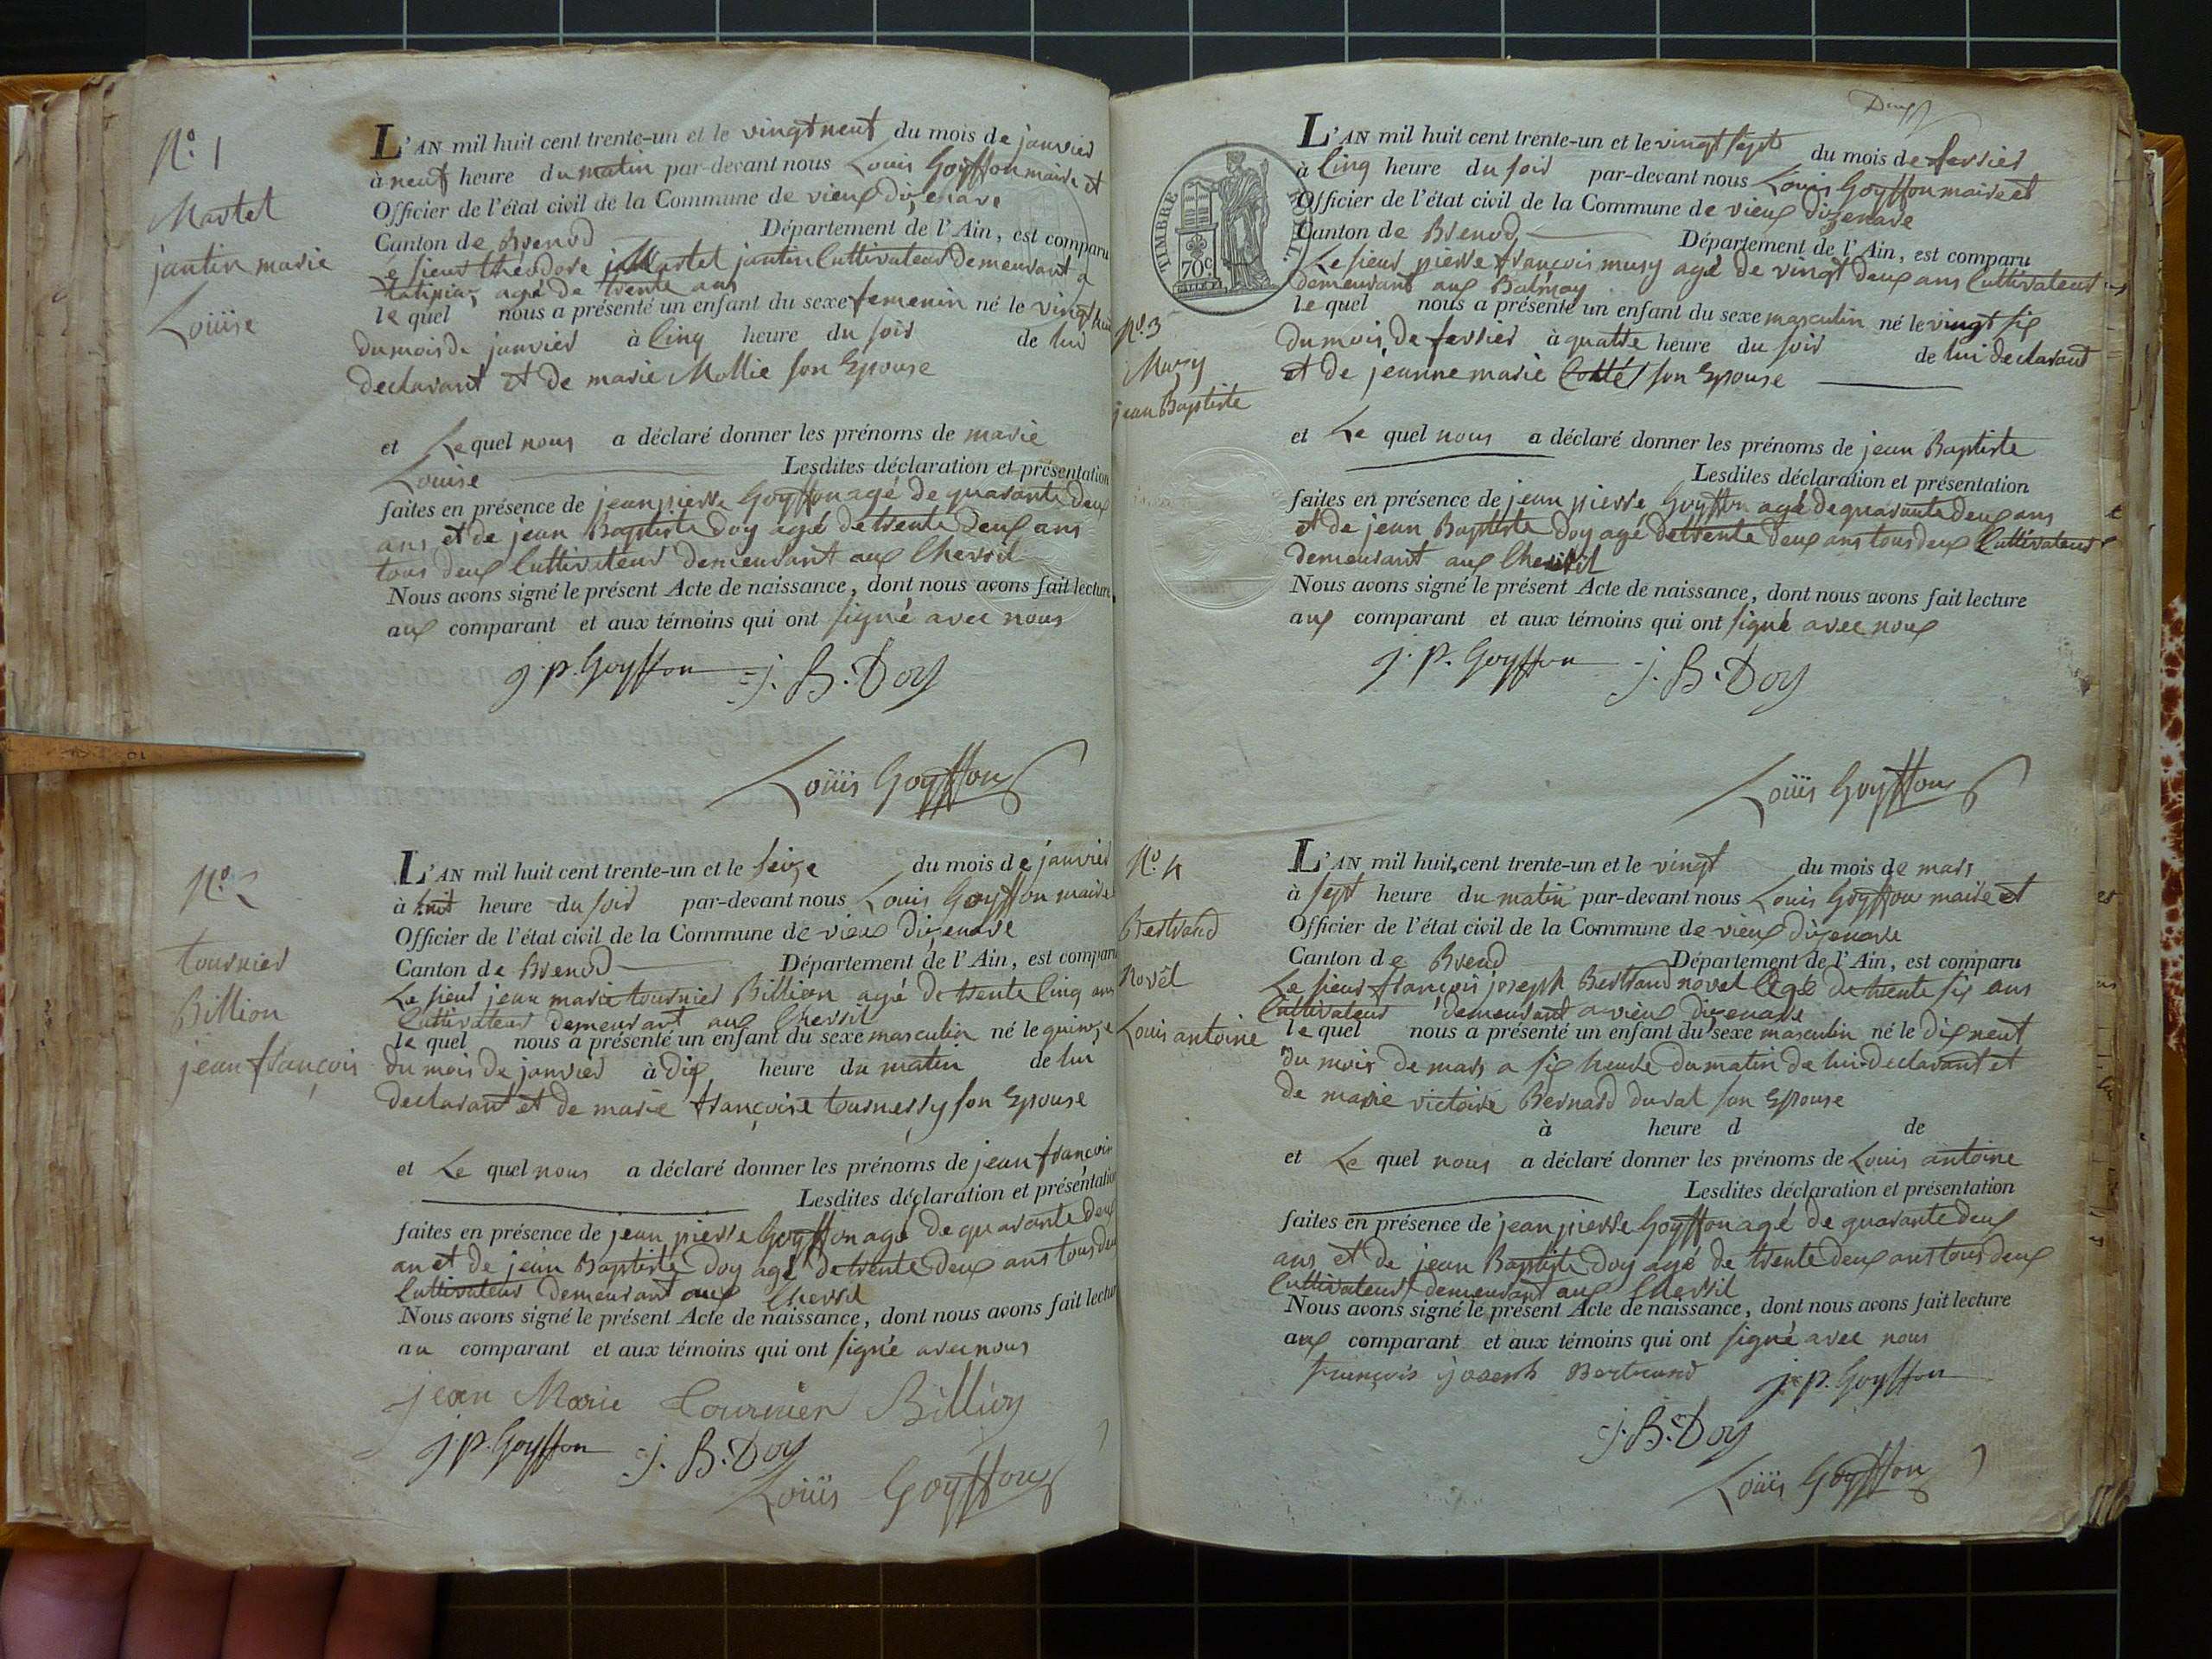 N.o 1
Martel
jantin marie
Loüise
L'AN mil huit cent trente-un et le vingt neuf du mois de janvier
à neuf heure du matin par-devant nous Louis Goyffon maire et
Officier de l'état civil de la Commune de vieux dizenave
Canton de Brenod Département de l'Ain, est comparu
Le sieur théodore Martel jantin Cultivateur demeurant a
agé de trente ans
le quel nous a présenté un enfant du sexe femenin né le vingt huit
du mois de janvier à Cinq heure du soir de lui
declarant et de marie Mollie son Epouse
et Le quel nous a déclaré donner les prénoms de marie
Louise Lesdites déclaration et présentation
faites en présence de jean pierre Goyffon agé de quarante deux
ans et de jean Baptiste Doy agé de trente deux ans
tous deux Cultivateur demeurant aux Chevril
Nous avons signé le présent Acte de naissance, dont nous avons fait lecture
aux comparant et aux témoins qui ont signé avec nous
j. p. Goyffon j. B. Doy
Loüis Goyffon
N.o 2
tournier
Billion
jean françois
L'AN mil huit cent trente-un et le seize du mois de janvier
à huit heure du soir par-devant nous Louis Goyffon maire
Officier de l'état civil de la Commune de vieux dizenave
Canton de Brenod Département de l'Ain, est comparu
Le sieur jean marie tournier Billion agé de trente Cinq ans
Cultivateur demeurant aux Chevril
le quel nous a présenté un enfant du sexe masculin né le quinze
du mois de janvier à dix heure du matin de lui
declarant et de marie françoise tournessy son Epouse
et Le quel nous a déclaré donner les prénoms de jean françois
Lesdites déclaration et présentation
faites en présence de jean pierre Goyffon agé de quarante deux
an et de jean Baptiste Doy agé de trente deux ans tous deux
Cultivateur demeurant aux Chevril
Nous avons signé le présent Acte de naissance, dont nous avons fait lecture
au comparant et aux témoins qui ont signé avec nous
jean Marie Tournier Billion
j. p. Goyffon j. B. Doy
Loüis Goyffon
Deux
TIMBRE
70c
N.o 3
Musy
jean Baptiste
L'AN mil huit cent trente-un et le vingt sept du mois de fevrier
à Cinq heure du soir par-devant nous Louis Goyffon maire et
Officier de l'état civil de la Commune de vieux dizenave
Canton de Brenod Département de l'Ain, est comparu
Le sieur pierre françois musy agé de vingt deux ans Cultivateur
demeurant aux Balmay
le quel nous a présenté un enfant du sexe masculin né le vingt six
du mois de fevrier à quatre heure du soir de lui declarant
et de jeanne marie Collet son Epouse
et Le quel nous a déclaré donner les prénoms de jean Baptiste
Lesdites déclaration et présentation
faites en présence de jean pierre Goyffon agé de quarante deux ans
et de jean Baptiste Doy agé de trente deux ans tous deux Cultivateur
demeurant aux Chevril
Nous avons signé le présent Acte de naissance, dont nous avons fait lecture
aux comparant et aux témoins qui ont signé avec nous
j. P. Goyffon j. B. Doy
Loüis Goyffon
N.o 4
Bertrand
Novêl
Louis antoine
L'AN mil huit cent trente-un et le vingt du mois de mars
à sept heure du matin par-devant nous Louis Goyffon maire et
Officier de l'état civil de la Commune de vieux dizenave
Canton de Brend Département de l'Ain, est comparu
Le sieur françois joseph Bertrand novel agé de trente six ans
Cultivateur demeurant a vieux dizenave
le quel nous a présenté un enfant du sexe masculin né le dix neuf
du mois de mars a six heure du matin de lui declarant et
de marie victoire Bernard duval son Epouse
à heure d de
et Le quel nous a déclaré donner les prénoms de Louis antoine
Lesdites déclaration et présentation
faites en présence de jean pierre Goyffon agé de quarante deux
ans et de jean Baptiste Doy agé de trente deux ans tous deux
Cultivateur demeurant aux Chevril
Nous avons signé le présent Acte de naissance, dont nous avons fait lecture
aux comparant et aux témoins qui ont signé avec nous
françois joseph Bertrand j. p. Goyffon
j. B. Doy
Loüis Goyffon